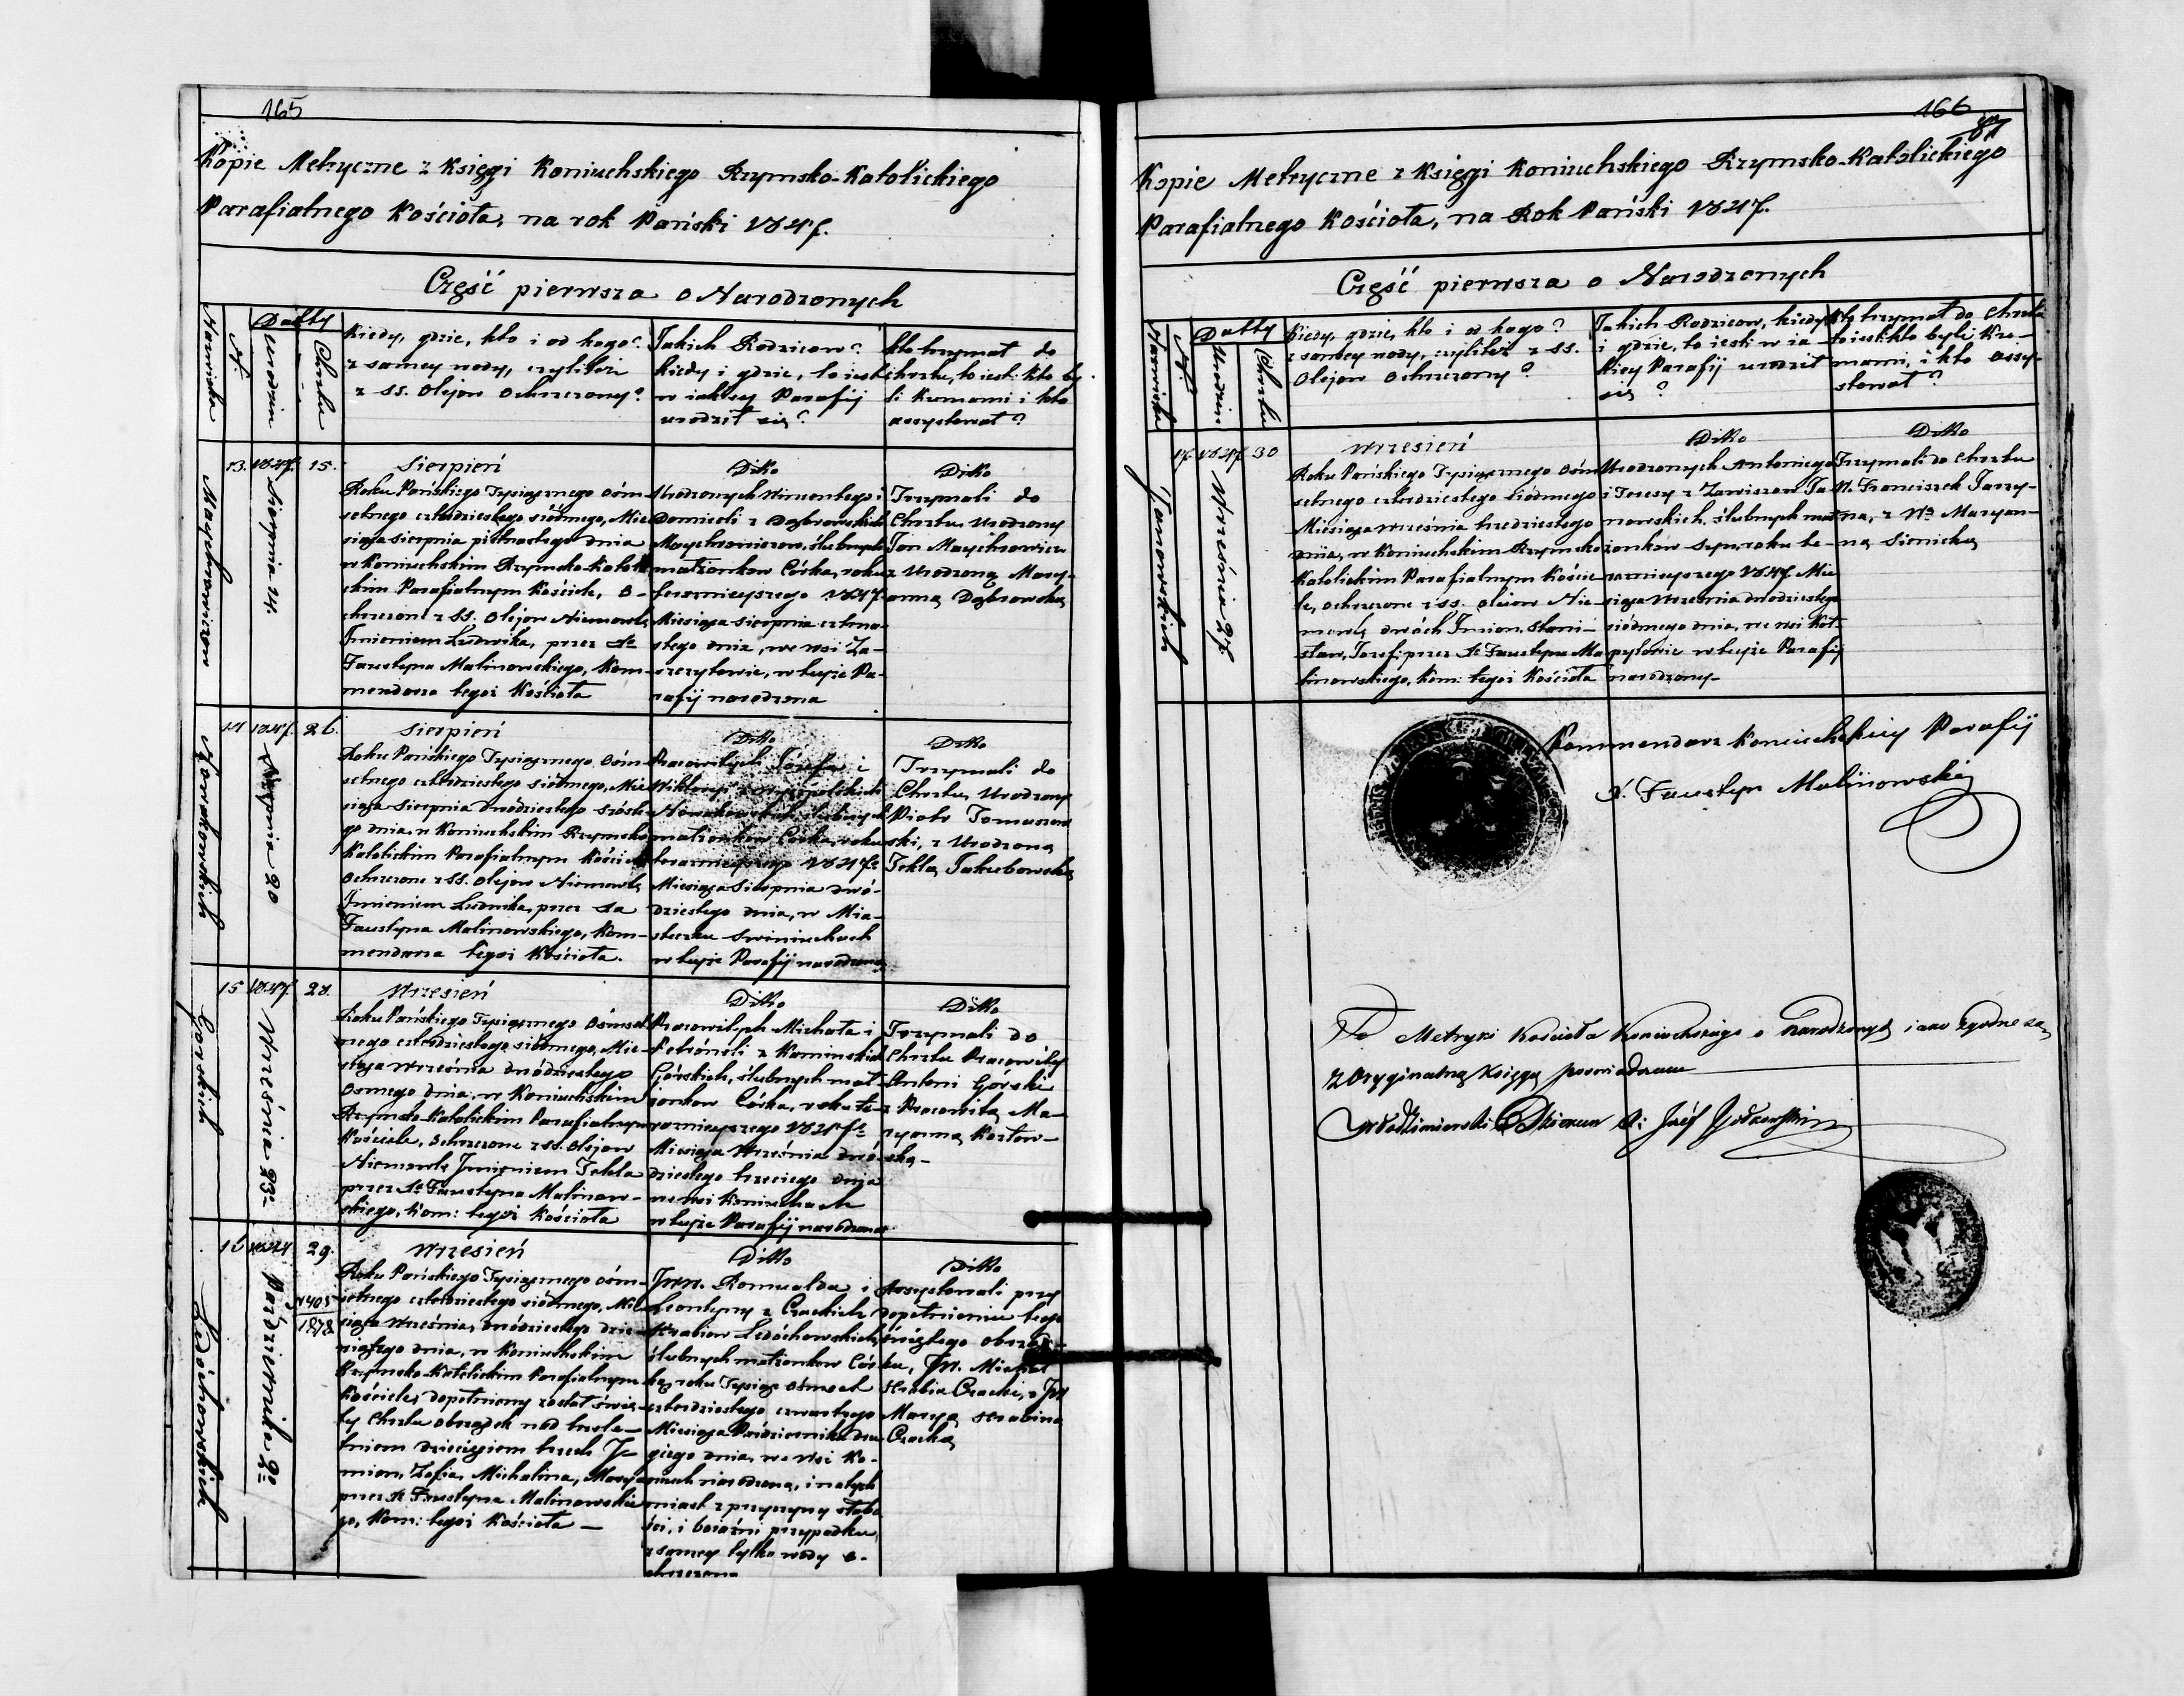 165
Kopie Metryczne z Księgi Koniuchskiego Rzymsko-Katolickiego
Parafialnego Kościoła, na rok Pański 1847.
Część pierwsza o Narodzonych
Nazwiska
N.
Datty
Urodzin
Chrztu
Kiedy, gdzie, kto i od kogo?
z samey wody, czyliteż
z SS. Olejow Ochrzczony?
Jakich Rodzicow?
kiedy i gdzie, to iest
w iakiey Parafij
urodził się?
kto trzymał do
chrztu, to iest: kto by-
li Kumami i kto
assystował?
Maychrowiczow
13.
1847.
Sierpnia 14
15.
Sierpień
Roku Pańskiego Tysiącznego Ośm-
setnego czterdziestego siódmego, Mie-
siąca Sierpnia piętnastego dnia
w Koniuchskim Rzymsko-Katolic-
kim Parafialnym Kościele, O-
chrzczone z SS. Olejow Niemowle
Imieniem Ludwika, przez X
Faustyna Malinowskiego, Kom-
mendarza tegoż Kościoła
Ditto
Urodzonych Wincentego i
Domiceli z Dąbrowskich
Maychrowiczow, ślubnych
małżonkow Córka, roku
teraznieyszego 1847
Miesiąca Sierpnia czterna-
stego dnia, we Wsi Za-
w tuyże Pa-
rafij narodzona
Ditto
Trzymali do
Chrztu Urodzony
Jan Maychrowicz
z Urodzoną Mary-
anną Dąbrowską
Nowakowskich
14
1847.
Sierpnia 20
26.
Sierpień
Roku Pańskiego Tysiącznego Ośm-
setnego czterdziestego siódmego, Mie-
siąca Sierpnia dwódziestego szóste-
go dnia, w Koniuchskim Rzymsko
Katolickim Parafialnym Kościele
Ochrzczone z SS. Olejow Niemowle
Imieniem Ludwika, przez X
Faustyna Malinowskiego, Kom-
mendarza tegoż Kościoła.
Ditto
Pracowitych Józefa i
Wiktoryi
Nowakowskich ślubnych
małżonkow Córka, roku
teraznieyszego 1847
Miesiąca Sierpnia dwó-
dziestego dnia, w Mia-
steczku Swiniuchach
w tuyże Parafij narodzona
Ditto
Trzymali do
Chrztu Urodzony
Piotr Tomaszew
ski, z Urodzoną
Teklą Jakubowską
Górskich
15
1847.
Września 23
28.
Wrzesień
Roku Pańskiego Tysiącznego Ośmset-
nego czterdziestego siódmego, Mie-
siąca Września dwódziestego
Osmego dnia, w Koniuchskim
Rzymsko-Katolickim Parafialnym
Kościele, Ochrzczone z SS. Olejow
Niemowle Imieniem Tekla
przez X Faustyna Malinow-
skiego, Kom: tegoż Kościoła
Ditto
Pracowitych Michała i
Petronęli z Kaminskich
Górskich, ślubnych mał-
żonkow Córka, roku te-
raznieyszego 1847
Miesiąca Września dwó-
dziestego trzeciego dnia
we wsi Koniuchach
w tuyże Parafij narodzona
Ditto
Trzymali do
Chrztu Pracowity
Antoni Górski
z Pracowitą Ma-
ryanną Kozłow-
ską-
Ledóchowskich
16
1844
Października 2
29.
N 405
1878
Wrzesień
Roku Pańskiego Tysiącznego Ośm-
setnego czterdziestego siódmego, Mie-
siąca Września, dwódziestego dzie-
wiątego dnia, w Koniuchskim
Rzymsko-Katolickim Parafialnym
Kościele, dopełniony został świę-
ty Chrztu obrządek nad trzele-
tniem dziecięciem trzech I-
mion, Zofia, Michalina, Marya
przez X Faustyna Malinowskie
go, Kom: tegoż Kościoła —
Ditto
JWW. Romualda i
Leontyny z Czackich
Hrabiow Ledóchowskich
ślubnych małżonkow Cór-
kę, roku Tysiąc Ośmset
czterdziestego czwartego
Miesiąca Października dru
giego dnia, we Wsi Ko-
niuch narodzona, i natych
miast z przyczyny słabo
ści, i bojaźni przypadku,
z samey tylko wody o-
chrzczona
Ditto
Assystowali przy
dopełnieniu tego
świętego obrząd-
ku, JW. Michał
Hrabia Czacki, z JW
Maryą Hrabiną
Czacką
166
87
Kopie Metryczne z Księgi Koniuchskiego Rzymsko-Katolickiego
Parafialnego Kościoła, na Rok Pański 1847.
Część pierwsza o Narodzonych
Nazwiska
N.
Datty
Urodzin
Chrztu
Kiedy, gdzie, kto i od kogo?
z samey wody, czyliteż z SS.
Olejow Ochrzczony?
Jakich Rodzicow, kiedy
i gdzie, to iest: w ia-
kiey Parafij urodził
się?
Kto trzymał do Chrztu
to iest: kto byli Ku-
mami, i kto assy-
stował?
Janowskich
17.
1847
Września 27
30
Wrzesień
Roku Pańskiego Tysiącznego Ośm
setnego czterdziestego siódmego
Miesiąca Września trzedziestego
dnia, w Koniuchskim Rzymsko
Katolickim Parafialnym Koście-
le, Ochrzczone z SS. Olejow Nie-
mowle dwóch Imion. Stani-
sław, Jozef; przez X Faustyna Ma
linowskiego, Kom: tegoż Kościoła
Ditto
Urodzonych Antoniego
i Teresy z Zawiszow Ja-
nowskich, ślubnych mał-
żonków Syn, roku te-
raznieyszego 1847. Mie-
siąca Września dwódziestego
siódmego dnia, we wsi Koł-
pytowie w tuyże Parafij
narodzony-
Ditto
Trzymali do Chrztu
W. Franciszek Jarzy-
na, z Wą Maryan-
ną Siemicką
Kommendarz Koniuchskiey Parafij
X. Faustyn Malinowski
Te Metryki Kościoła Koniuchskiego o Narodzonych iako zgodne są
z Oryginalną Księgą poswiadczam
Włodzimierski Dziekan X: